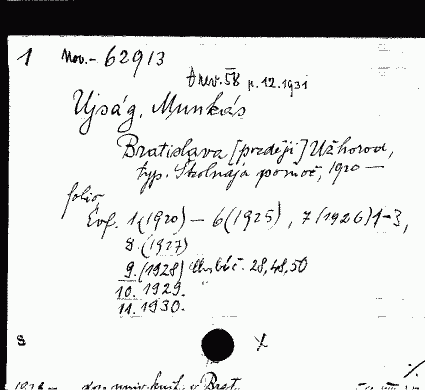 1 Nov.- 62913
A nev. 58 n. 12. 1931
Ujság, Munkás
Bratislava [později] Užhorod,
typ. Školnaja pomoč, 1920 —
folio
Évf. 1 (1920) — 6 (1925), 7 (1926) 1-3,
8. (1927)
9. (1928) chybí č. 28, 48, 50
10. 1929.
11. 1930.
8 X